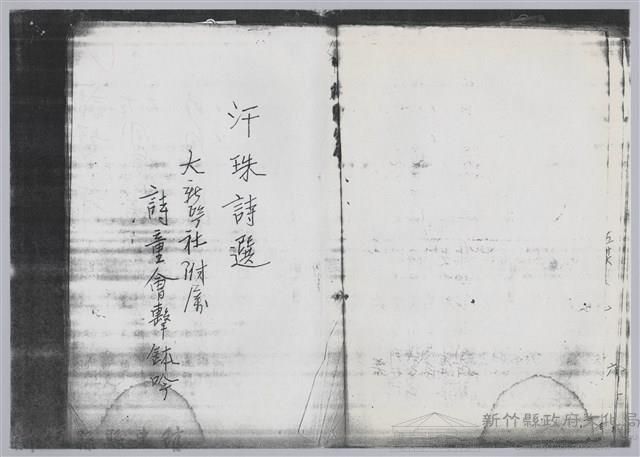 汗珠詩選
大新吟社附屬
詩童會擊鉢吟
新竹縣政府文化局